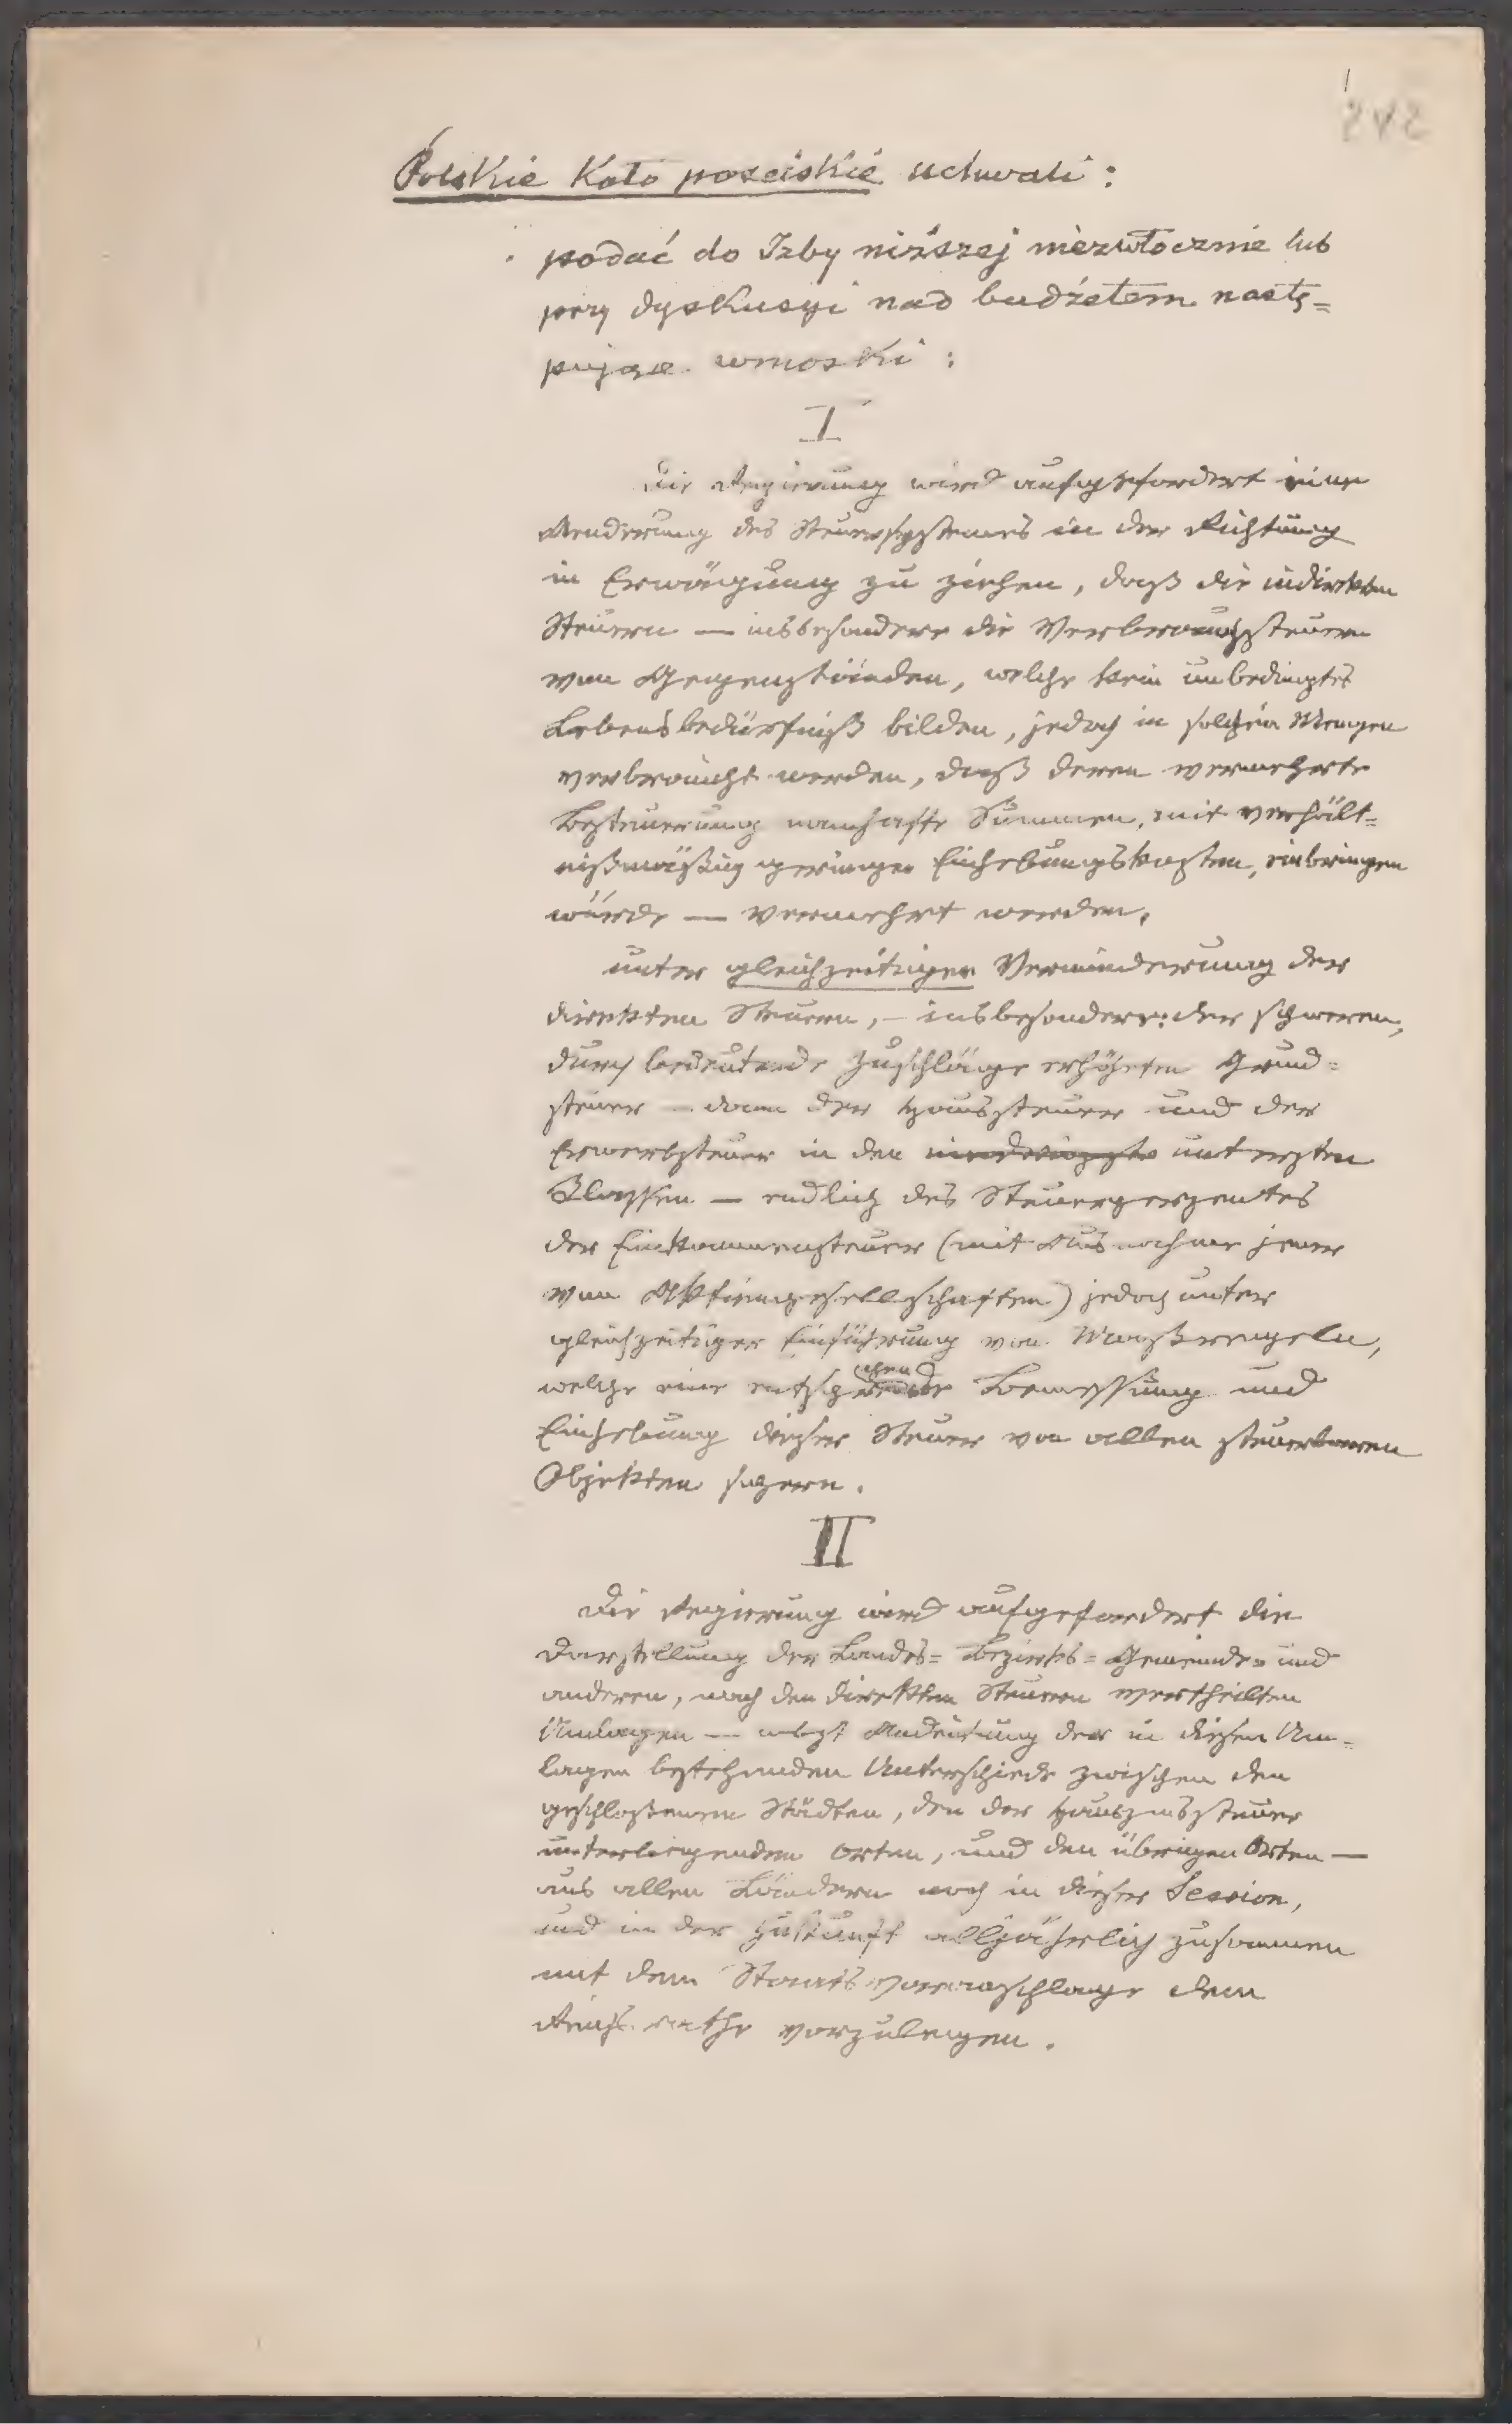 Polskie Koło poselskie uchwali:
podać do Izby niższej niezwłocznie lub
przy dyskusyi nad budżetem nastę=
pujące wnioski:
I
Die Regierung wird aufgefordert eine
Aenderung des Steuersystems in der Richtung
in Erwägung zu ziehen, daß die indirekten
Steuern — insbesondere die Verbrauchssteuern
von Gegenständen, welche kein unbedingtes
Lebensbedürfniß bilden, jedoch in solchen Mengen
verbraucht werden, daß deren vermehrte
Besteuerung namhafte Summen, mit verhält=
nißmäßig geringen Einhebungskosten, einbringen
würde — vermehrt werden,
unter gleichzeitiger Verminderung der
direkten Steuern, – insbesondere: der schweren,
durch bedeutende Zuschläge erhöhten Grund=
steuer — dann der Haussteuer und der
Erwerbsteuer in den untersten
Klassen — endlich des Steuerperzentes
der Einkommensteuer (mit Ausnahme jener
von Aktiengesellschaften) jedoch unter
gleichzeitiger Einführung von Maßregeln,
welche eine entsprechende Bemessung und
Einhebung dieser Steuer von allen steuerbaren
Objekten sichern.
II
Die Regierung wird aufgefordert die
Darstellung der Landes= Bezirks= Gemeinde= und
anderen, nach den direkten Steuern vertheilten
Umlagen — nebst Andeutung der in diesen Um=
lagen bestehenden Unterschiede zwischen den
geschlossenen Städten, den der Hauszinssteuer
unterliegenden Orten, und den übrigen Orten —
aus allen Ländern noch in dieser Session,
und in der Zukunft alljährlich zusammen
mit dem Staatsvoranschlage dem
Reichsrathe vorzulegen.